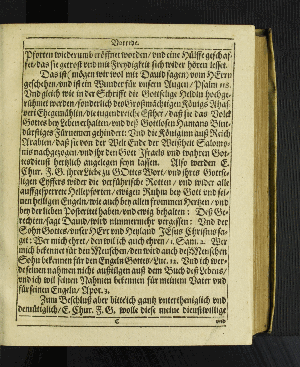 Vorrede.
Pforten wiederumb eröffnet worden / und eine Hülffe geschaf-
fet / das sie getrost und mit Freydigkeit sich wider hören lesset.
Das ist / mögen wir wol mit David sagen / vom HErrn
geschehen / und ist ein Wunder für unsern Augen / Psalm 118.
Und gleich wie in der Schrifft die Gottselige Heldin hochge-
rühmet werden / sonderlich des Großmächtigen Königs Ahas-
veri Ehegemählin / die tugendreiche Esther / daß sie das Volck
Gottes bey Leben erhalten / und des Gottlosen Hamans Blut-
dürstiges Fürnemen gehindert: Und die Königinn auß Reich
Arabien / daß sie von der Welt Ende der Weißheit Salomo-
nis nachgezogen / und ihr den Gott Israels und wahren Got-
tesdienst hertzlich angelegen seyn lassen. Also werden E.
Chur. F. G. ihrer Liebe zu GOttes Wort / und ihres Gottse-
ligen Eyffers wider die verführische Rotten / und wider alle
auffgesperrete Hellepforten / ewigen Ruhm bey Gott und sei-
nen heiligen Engeln / wie auch bey allen frommen Hertzen / und
bey der lieben Posteritet haben / und ewig behalten: Deß Ge-
rechten / sagt David / wird nimmermehr vergessen: Und der
Sohn Gottes / unser HErr und Heyland JEsus Christus sa-
get: Wer mich ehret / den wil ich auch ehren / 1. Sam. 2. Wer
mich bekennet für den Menschen / den wird auch deß Menschen
Sohn bekennen für den Engeln Gottes / Luc. 12. Und ich wer-
de seinen nahmen nicht außtilgen auß dem Buch deß Lebens /
und ich wil seinen Nahmen bekennen für meinem Vater und
für seinen Engeln / Apoc. 3.
Zum Beschluß aber bitte ich gantz unterthäniglich und
demütiglich / E. Chur. F. G. wolle diese meine dienstwillige
C und